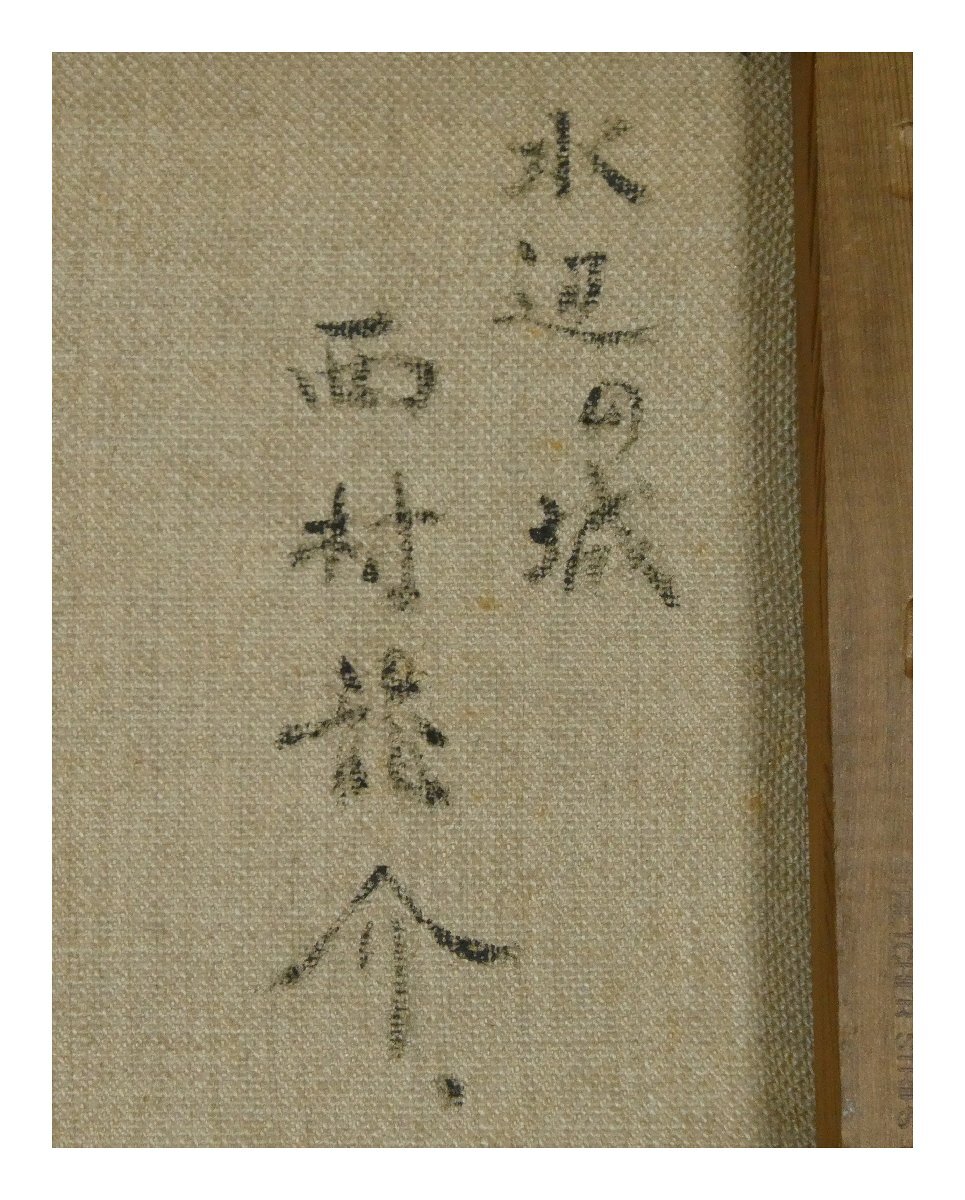 水辺の城
西村龍介